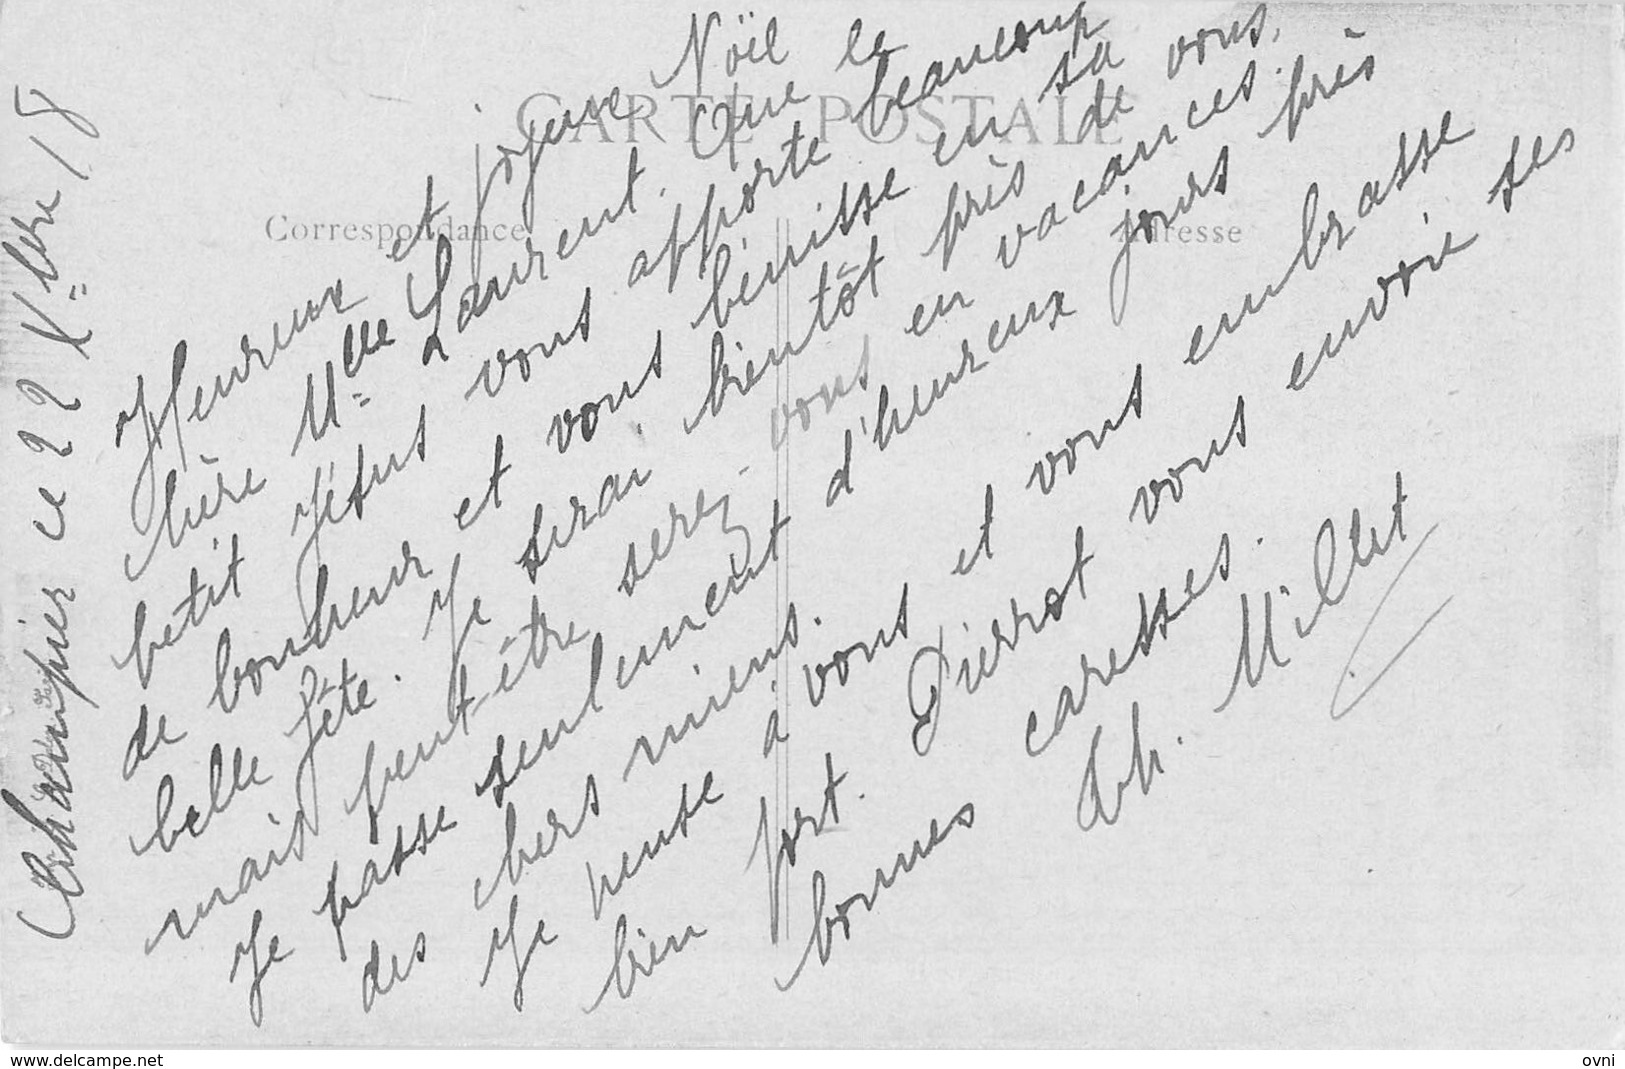 CARTE POSTALE
Correspondance
Adresse
Champier ce 22 Xbre 18
Heureux et joyeux Noël
chère Mlle Laurent. Que le
petit Jésus vous apporte beaucoup
de bonheur et vous bénisse en sa
belle fête. Je serai bientôt près de vous,
mais peut-être serez-vous en vacances.
Je passe seulement d'heureux jours près
des chers miens.
Je pense à vous et vous embrasse
bien fort. Pierrot vous envoie ses
bonnes caresses.
Ch. Millet
www.delcampe.net
ovni